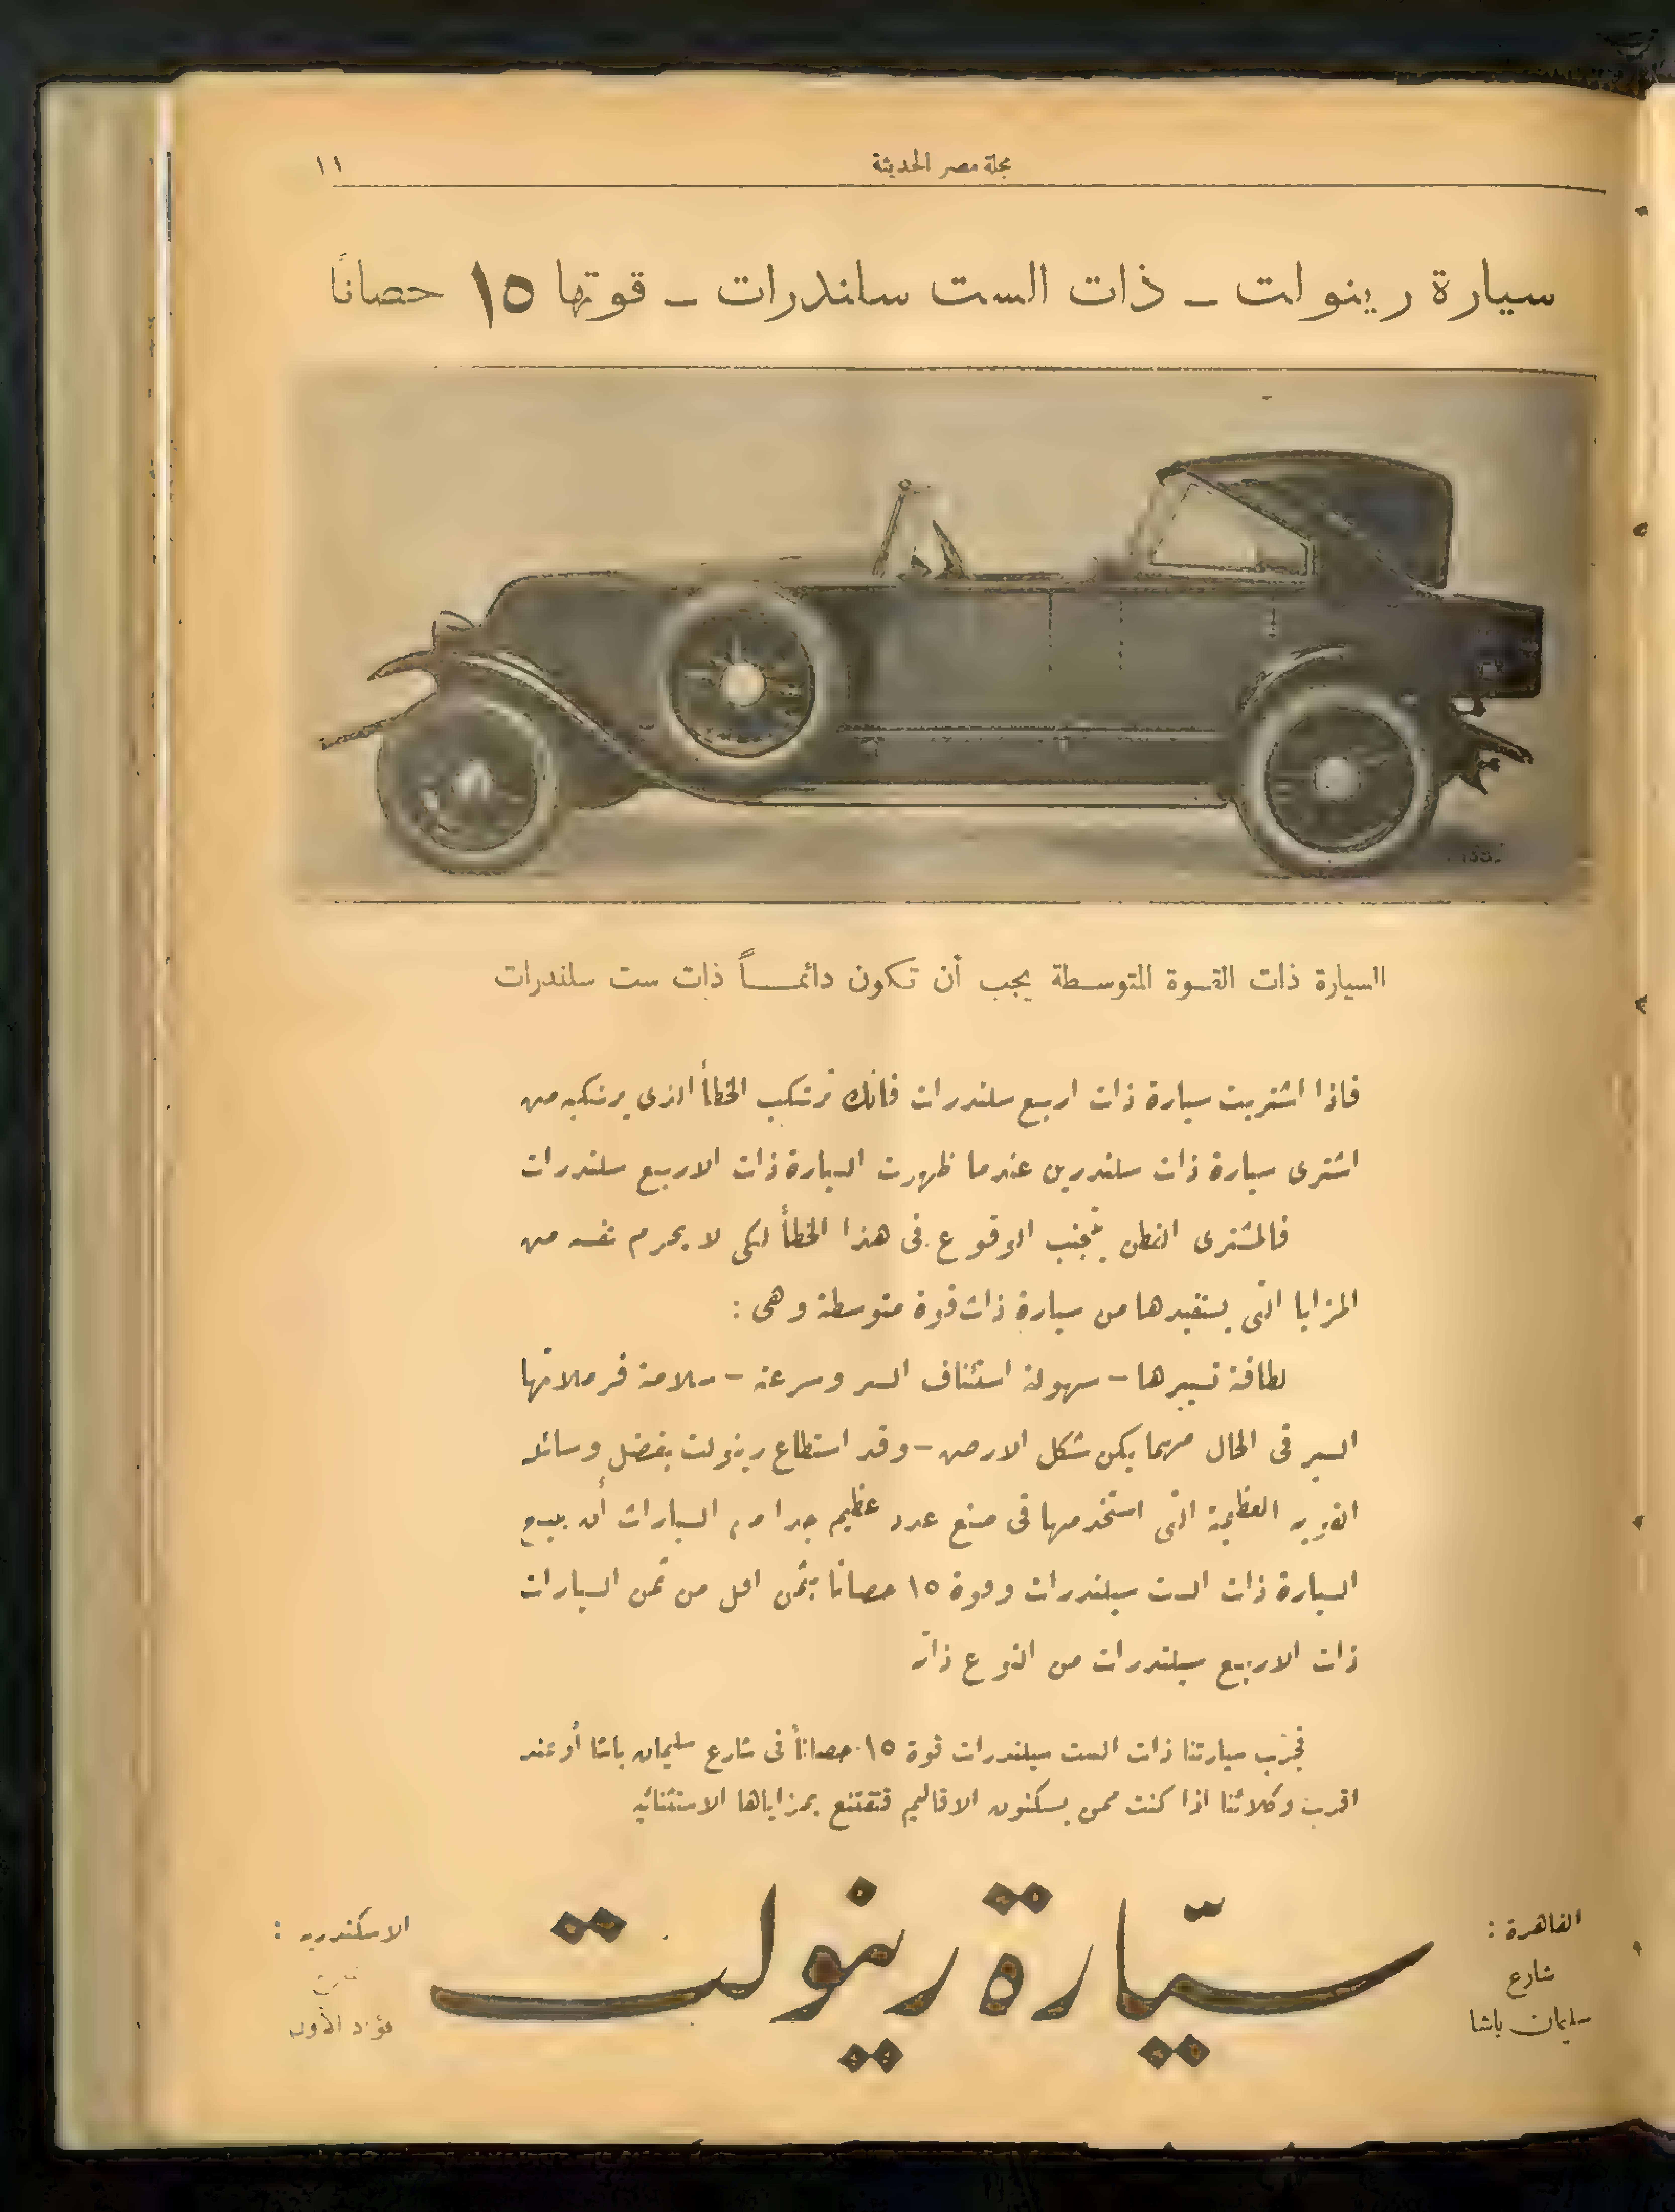 مجلة مصر الحديثة
١١
سيارة رينولت – ذات الست سلندرات – قوتها ١٥ حصانا
السيارة ذات القوة المتوسطة يجب أن تكون دائماً ذات ست سلندرات
فاذا اشتريت سيارة ذات اربع سلندرات فانك ترتكب الخطأ الذى يرتكبه من
اشترى سيارة ذات سلندرين عندما ظهرت السيارة ذات الاربع سلندرات
فالمشترى الفطن يتجنب الوقوع فى هذا الخطأ لكى لا يحرم نفسه من
المزايا التى يستفيدها من سيارة ذات قوة متوسطة وهى :
لطافة تسييرها – سهولة استئناف السير وسرعته – سلامة فرملاتها
السير فى الحال مهما يكن شكل الارض – وقد استطاع رينولت بفضل وسائله
العظيمة التى استخدمها فى صنع عدد عظيم جدا من السيارات أن يبيع
السيارة ذات الست سيلندرات وقوة ١٥ حصانا بثمن اقل من ثمن السيارات
ذات الاربع سيلندرات من النوع ذاته
فجرّب سيارتنا ذات الست سيلندرات قوة ١٥ حصاناً فى شارع سليمان باشا أو عند
اقرب وكلائنا اذا كنت ممن يسكنون الاقاليم فتقتنع بمزاياها الاستثنائية
القاهرة :
شارع
سليمان باشا
سيّارة رينولت
الاسكندرية :
شارع
فؤاد الأول